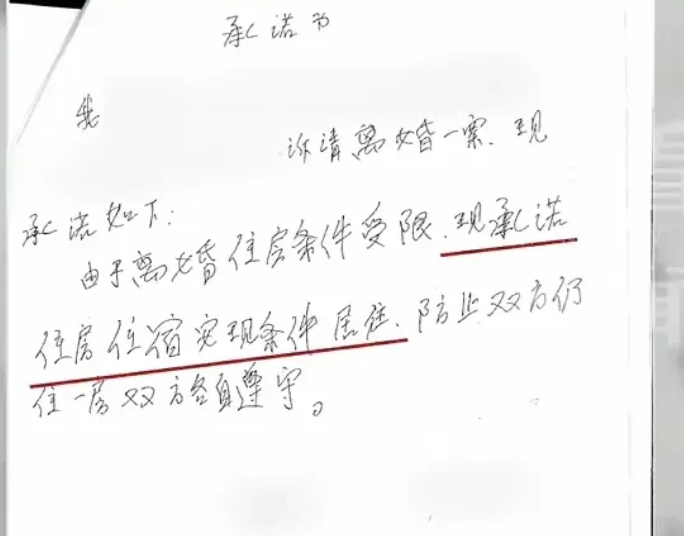 承诺书
我
诉请离婚一案、现
承诺如下:
由于离婚住房条件受限、现承诺
住房住宿实现条件居住、防止双方仍
住一房双方各自遵守。